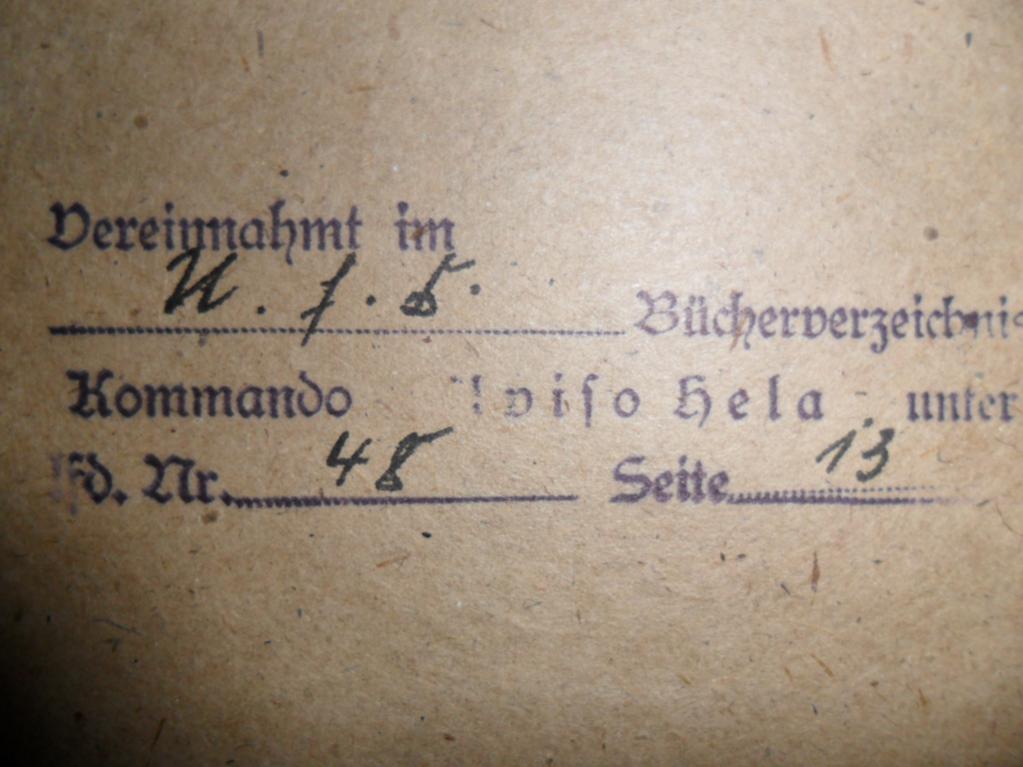 Vereinnahmt im
U. f. 5. Bücherverzeichnis
Kommando Aviso Hela unter
lfd. Nr. 48 Seite 13